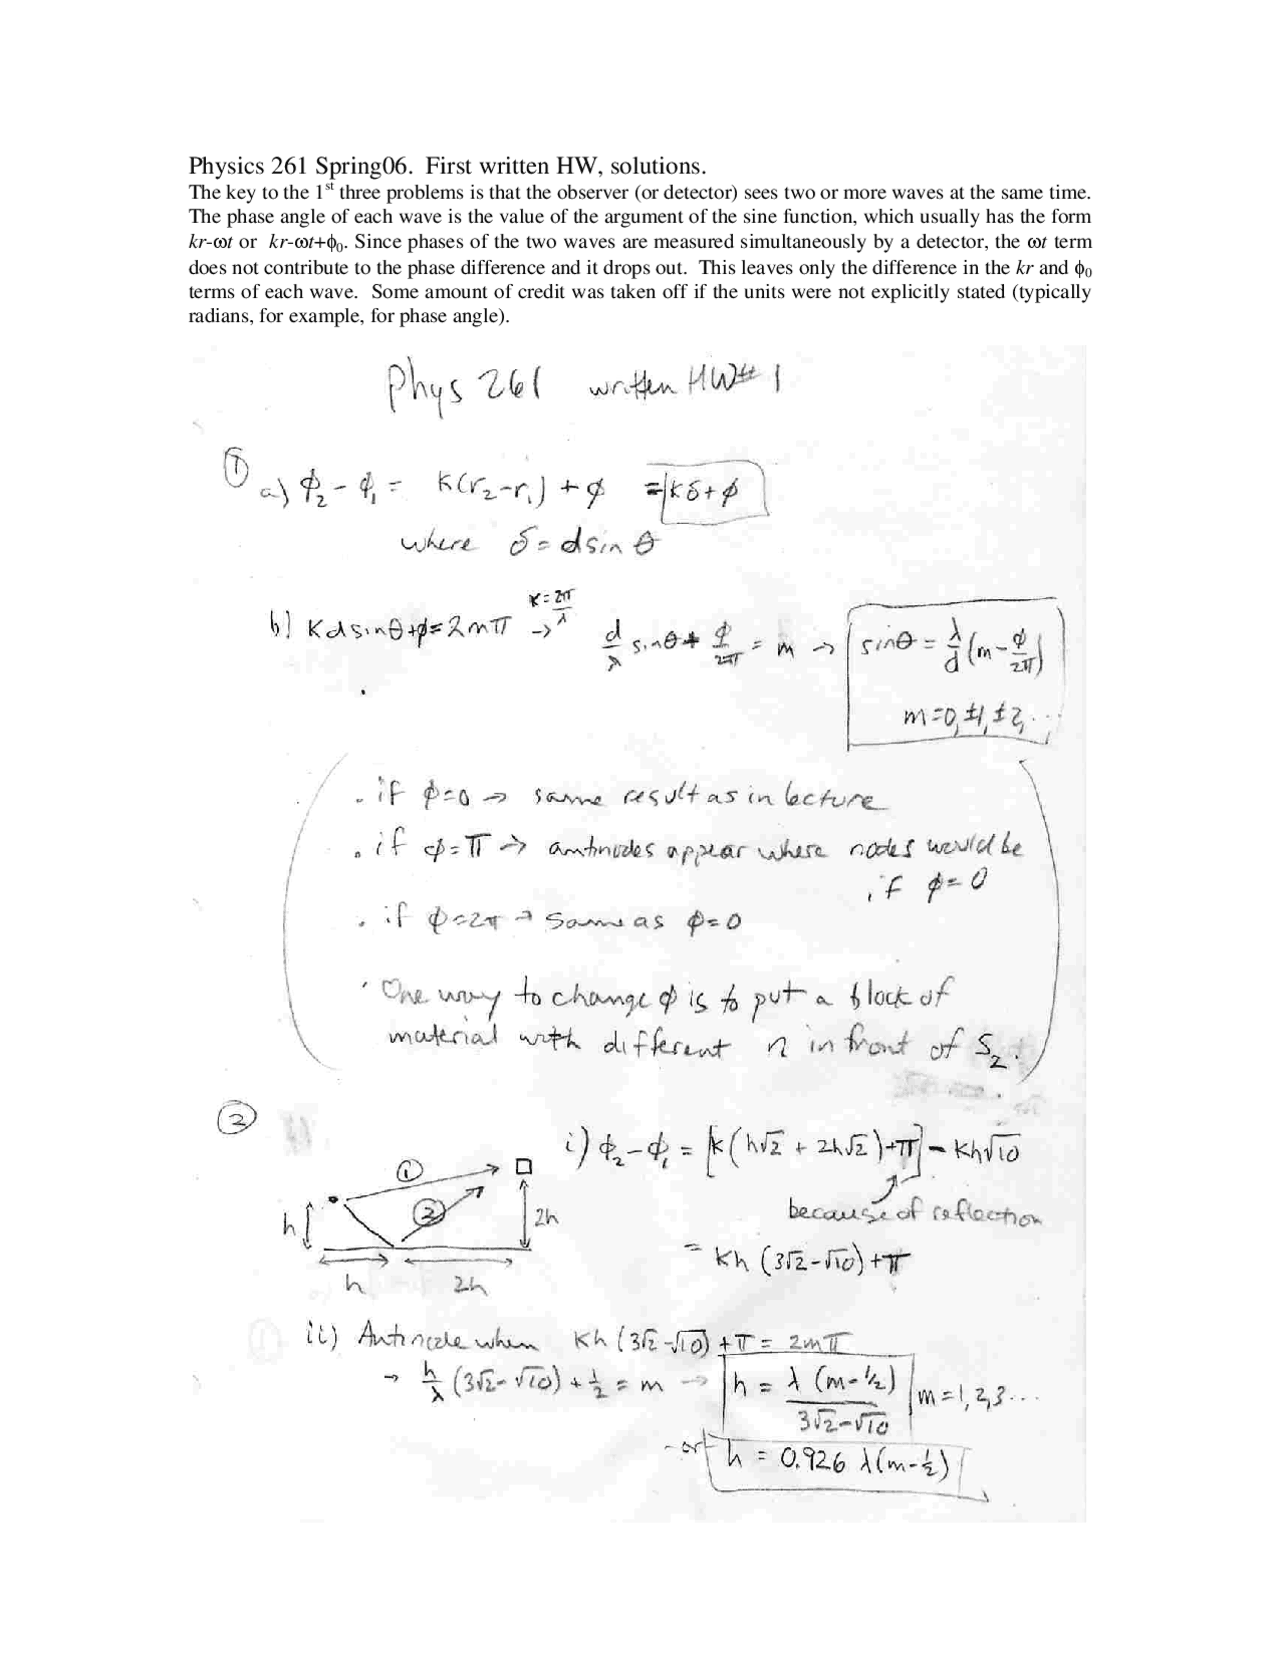 Physics 261 Spring06. First written HW, solutions.
The key to the 1st three problems is that the observer (or detector) sees two or more waves at the same time.
The phase angle of each wave is the value of the argument of the sine function, which usually has the form
kr-ωt or kr-ωt+ϕ0. Since phases of the two waves are measured simultaneously by a detector, the ωt term
does not contribute to the phase difference and it drops out. This leaves only the difference in the kr and ϕ0
terms of each wave. Some amount of credit was taken off if the units were not explicitly stated (typically
radians, for example, for phase angle).
Phys 261 written HW# 1
① a) ϕ₂ - ϕ₁ = k(r₂-r₁) + ϕ = kδ+ϕ
where δ = d sin θ
b) kd sinθ+ϕ = 2mπ → k=2π/λ d/λ sinθ + ϕ/2π = m → sinθ = λ/d (m - ϕ/2π)
m=0, ±1, ±2, ...
. if ϕ=0 → same result as in lecture
. if ϕ=π → antinodes appear where nodes would be
if ϕ=0
. if ϕ=2π → same as ϕ=0
· One way to change ϕ is to put a block of
material with different n in front of S₂.
② i) ϕ₂-ϕ₁ = [k(h√2 + 2h√2)+π] - kh√10
① ②
h 2h
because of reflection
= kh (3√2-√10)+π
h 2h
ii) Antinode when kh (3√2-√10) +π = 2mπ
→ h/λ (3√2-√10) + 1/2 = m → h = λ (m-1/2) / 3√2-√10 m=1,2,3...
-or- h = 0.926 λ(m-1/2)